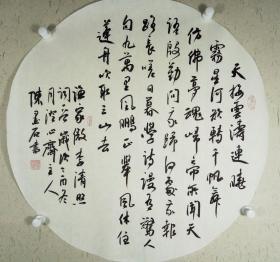 天接雲濤連曉
霧星河欲轉千帆舞
仿佛夢魂歸帝所聞天
語殷勤問我歸何處我報
路長嗟日暮學詩謾有驚人
句九萬里風鵬正舉風休住
蓬舟吹取三山去
漁家傲李清照
詞歲次
月澄心齋主人
陳石書